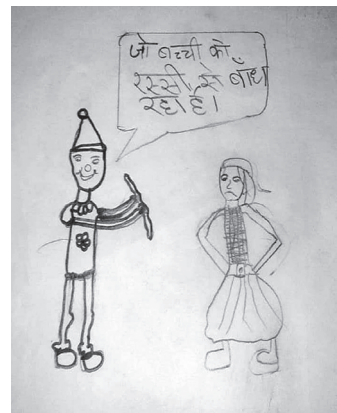 जो बच्ची को
रस्सी से बाँध
रहा है।